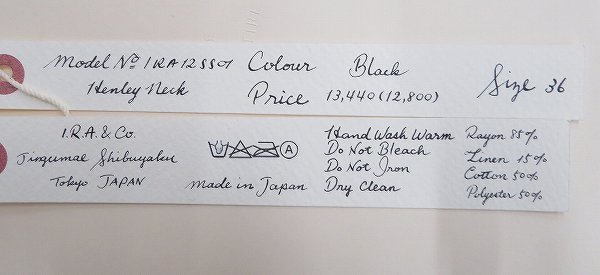 Model No IRA12SS01
Henley Neck
Colour Black
Price 13,440(12,800)
Size 36
I.R.A.& Co.
Jingumae Shibuyaku
Tokyo JAPAN
A
made in Japan
Hand Wash Warm
Do Not Bleach
Do Not Iron
Dry Clean
Rayon 85%
Linen 15%
Cotton 50%
Polyester 50%